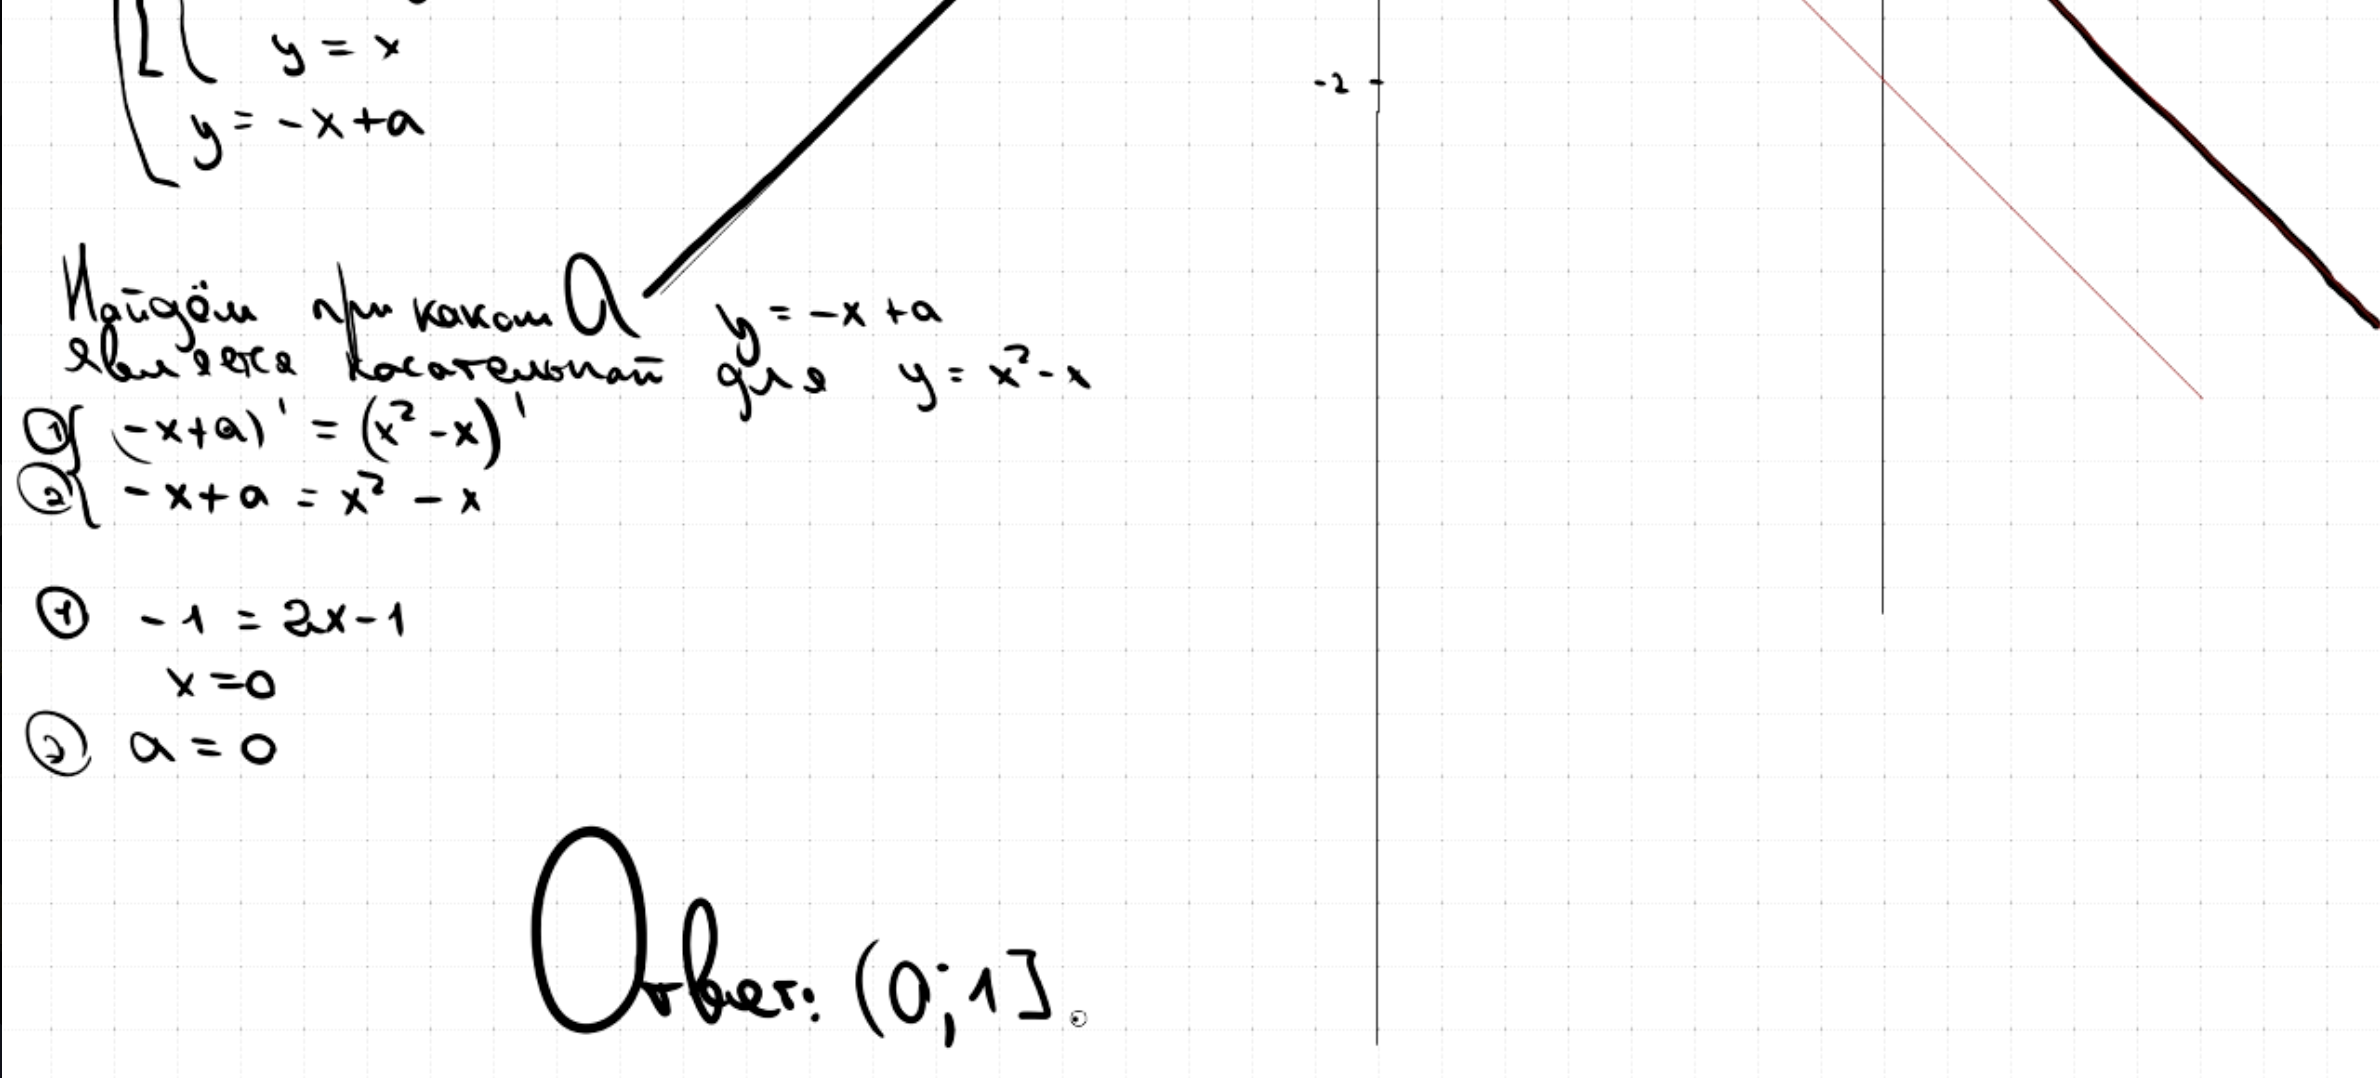 y = x
-2
y = -x+a
Найдём при каком a y = -x+a
является касательной для y = x² - x
① (-x+a)' = (x² - x)'
② -x+a = x² - x
① -1 = 2x-1
x = 0
② a = 0
Ответ: (0; 1].